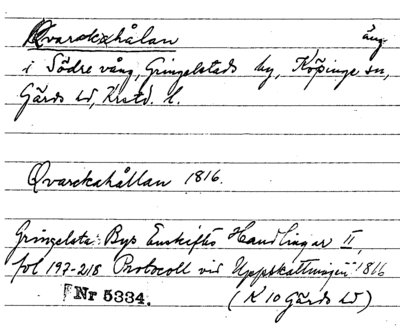 Qvarekahålan äng
i Södre vång, Gringelstads by, Köpinge sn,
Gärds hd, Krstd. l.
Qvarekahållan 1816.
Gringelsta Bys Enskiftes Handlingar II,
fol 197-218 Protocoll vid Uppskattningen 1816
Nr 5334. (K 10 Gärds hd)